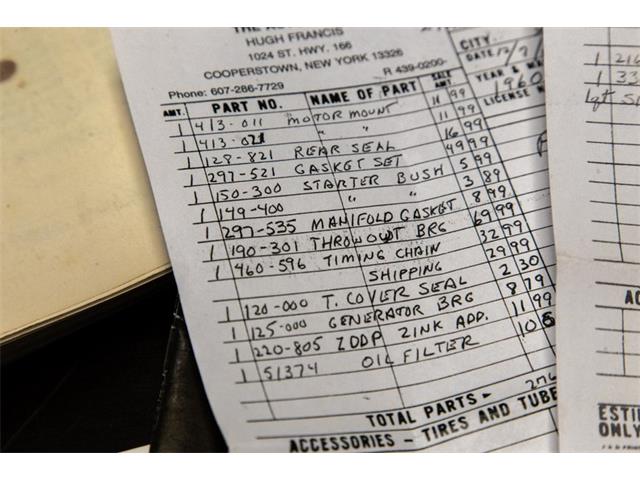 HUGH FRANCIS
1024 ST. HWY. 166
COOPERSTOWN, NEW YORK 13326
Phone: 607-286-7729 R 439-0200
CITY
DATE 12/7/
YEAR &
1960
LICENSE
AMT. PART NO. NAME OF PART SALE AMT.
1 413-011 MOTOR MOUNT 11 99
1 413-021 " " 11 99
1 128-821 REAR SEAL 16 99
1 297-521 GASKET SET 49 99
1 150-300 STARTER BUSH 5 99
1 149-400 " " 3 89
1 297-535 MANIFOLD GASKET 8 99
1 190-301 THROWOUT BRG 69 99
1 460-596 TIMING CHAIN 32 99
SHIPPING 29 99
1 120-000 T. COVER SEAL 2 30
1 125-000 GENERATOR BRG 8 79
1 220-805 ZDDP ZINK ADD. 11 99
1 51374 OIL FILTER 10
TOTAL PARTS 276
ACCESSORIES - TIRES AND TUBE
1 216
1 33
1qt
AC
ESTI
ONLY